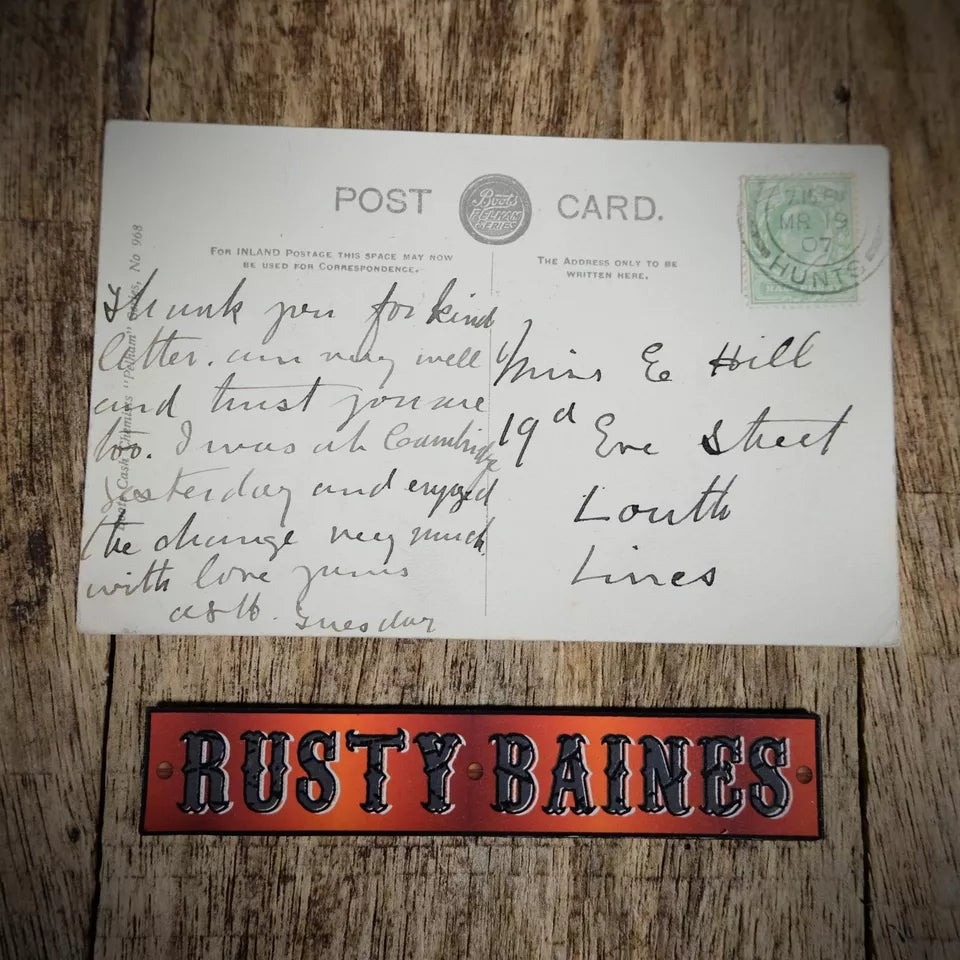 POST CARD.
Boots
PELHAM
SERIES
FOR INLAND POSTAGE THIS SPACE MAY NOW
BE USED FOR CORRESPONDENCE.
THE ADDRESS ONLY TO BE
WRITTEN HERE.
"Pelham" Series, No 968
Boots Cash Chemists
Thank you for kind
letter. am very well
and trust you are
too. I was at Cambridge
yesterday and enjoyed
the change very much
with love yours
Tuesday
Miss E Hill
19d Eve Street
Louth
Lincs
2.15 PM
MR 19
07
HUNTS
RUSTY BAINES